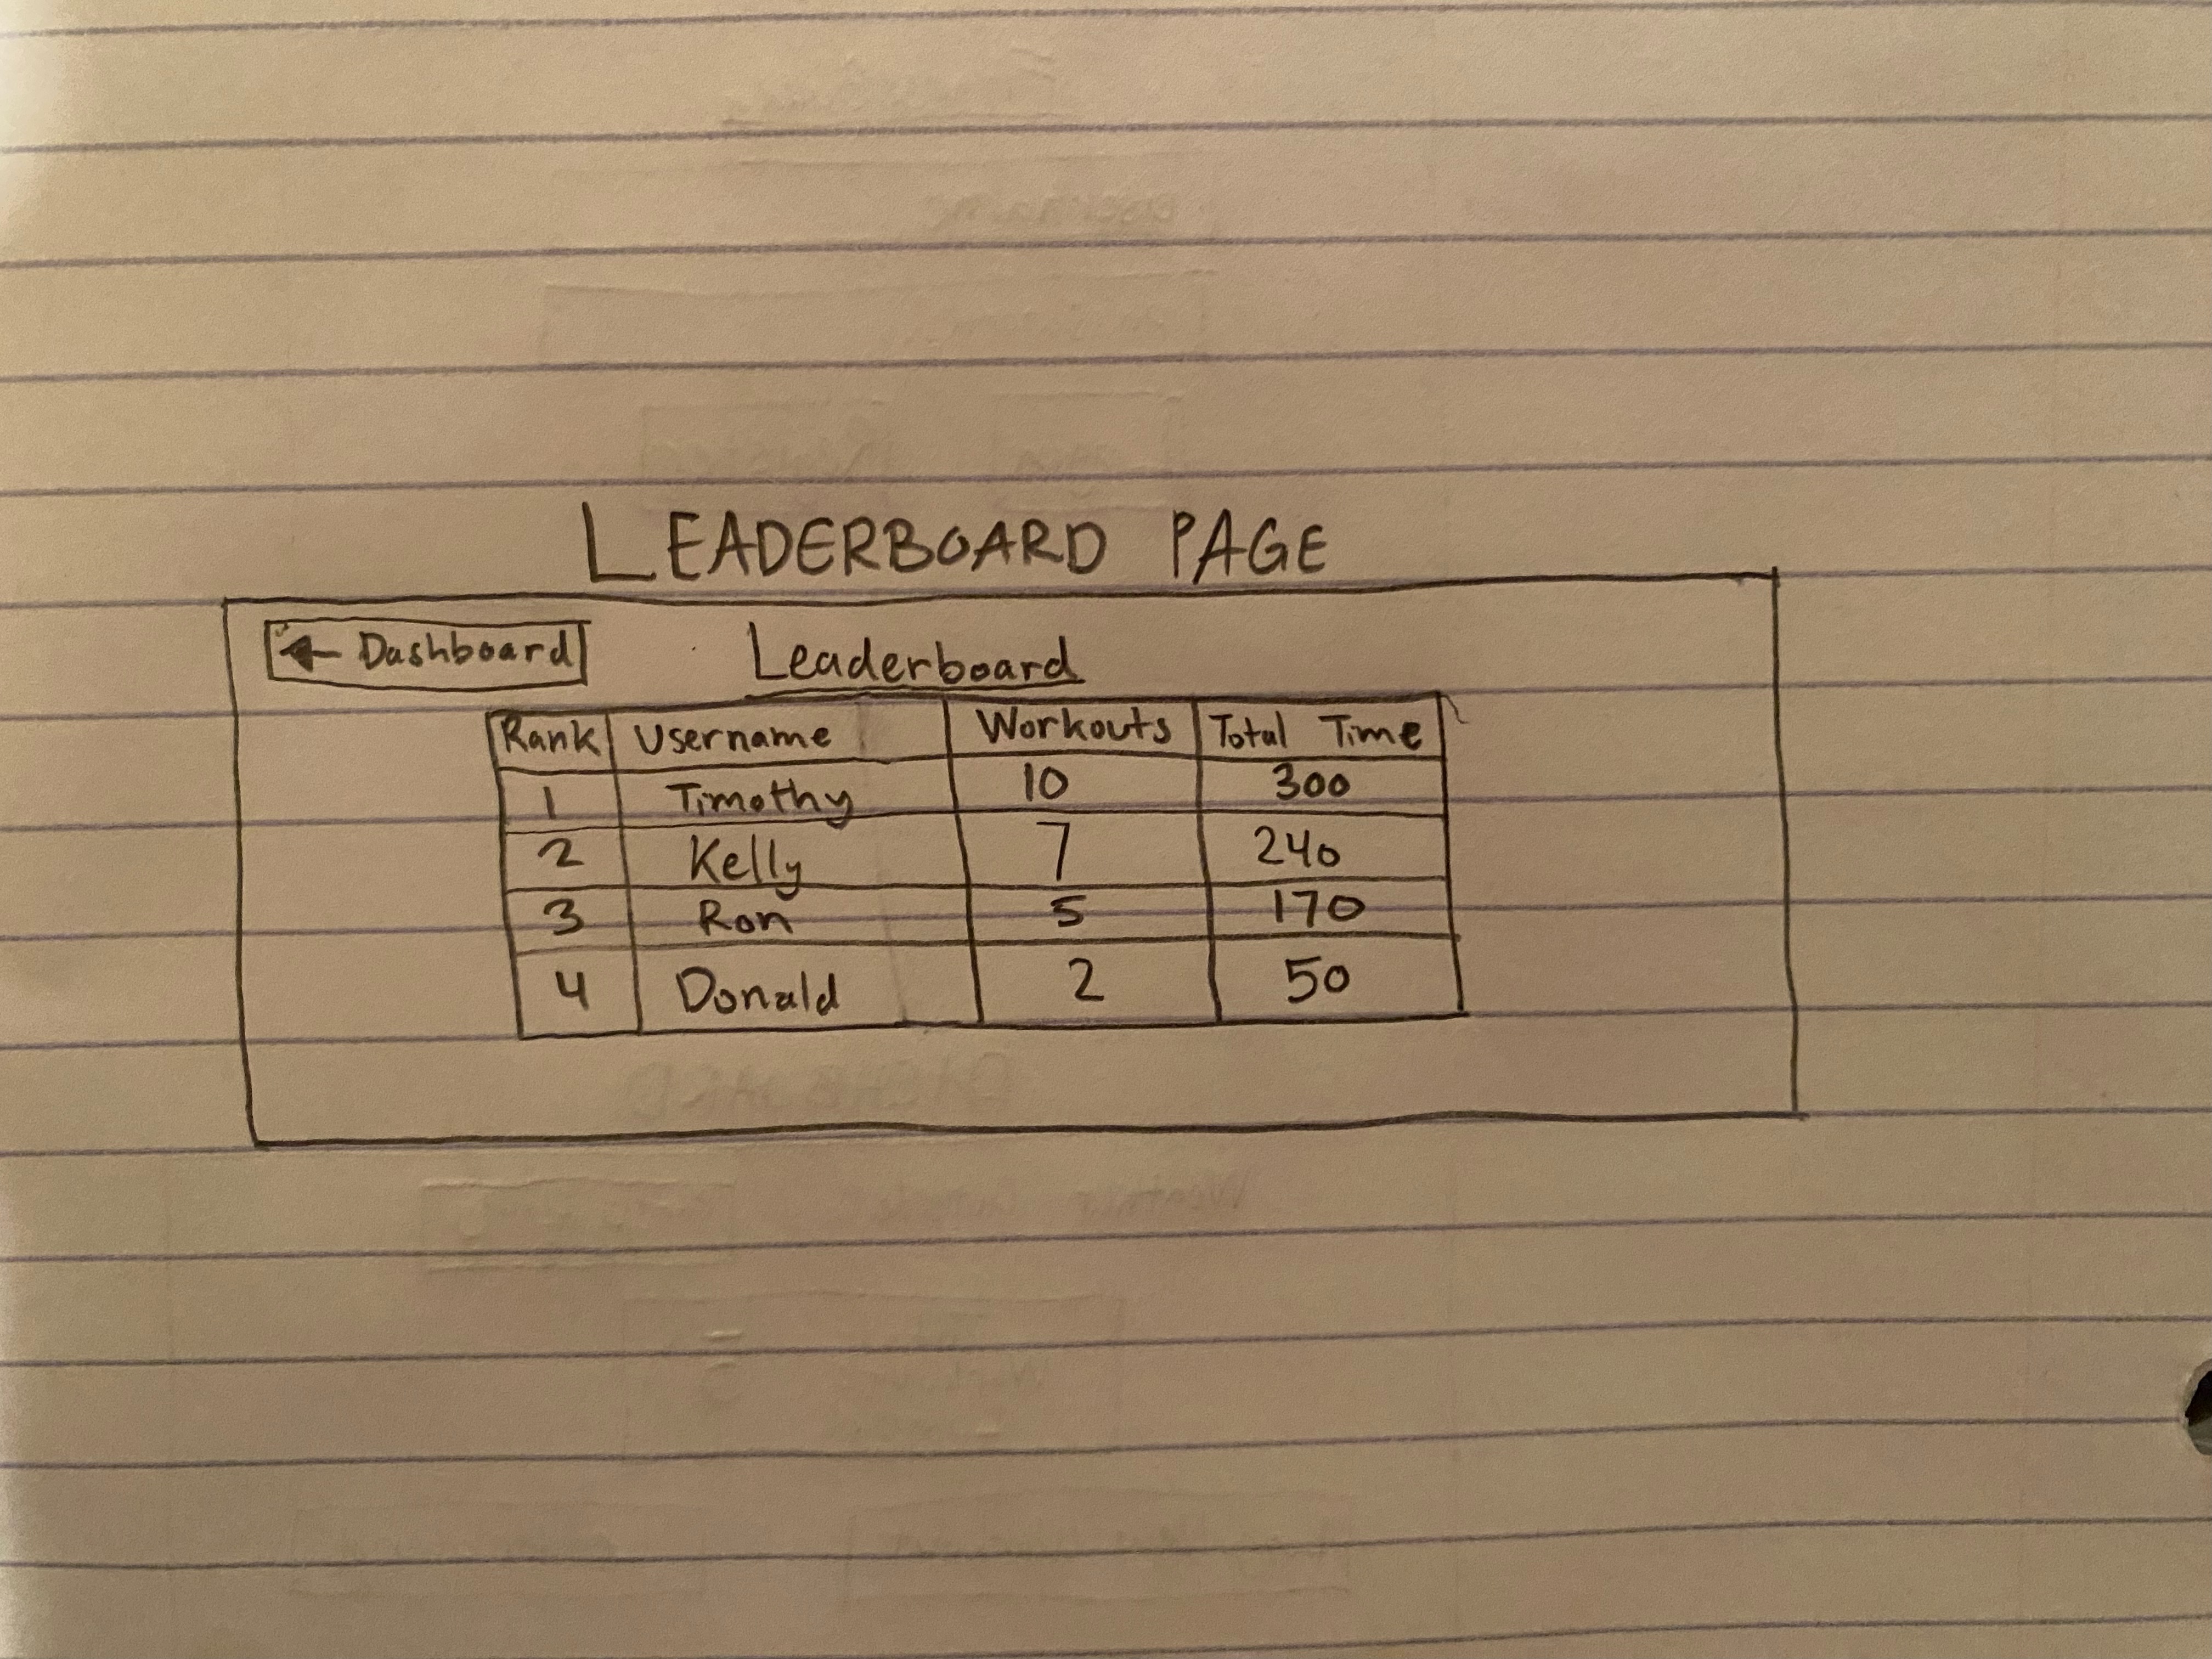 LEADERBOARD PAGE
← Dashboard
Leaderboard
Rank Username Workouts Total Time
1 Timothy 10 300
2 Kelly 7 240
3 Ron 5 170
4 Donald 2 50